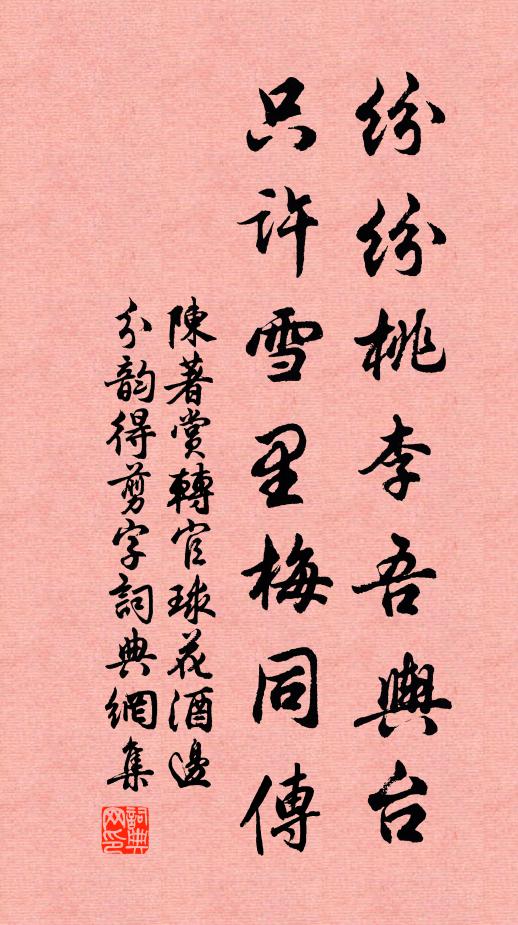 纷纷桃李吾輿台
只许雪里梅同傳
陳著賞轉官球花酒邊
分韵得剪字詞典網集
詞典网印